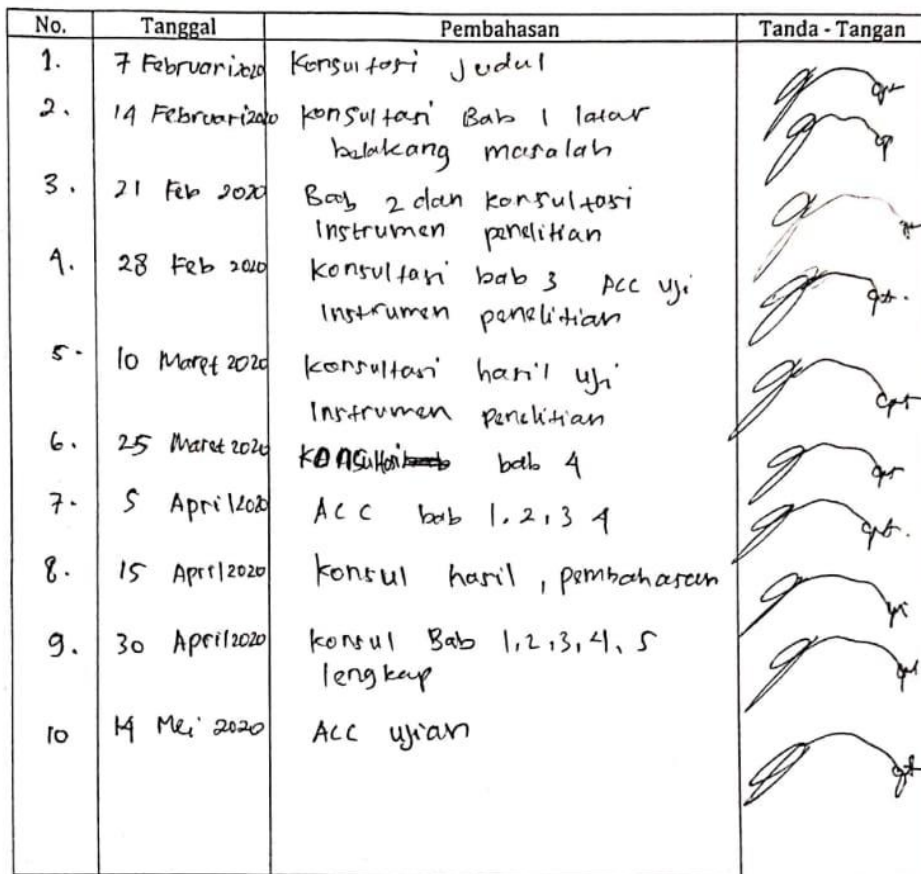 No. Tanggal Pembahasan Tanda - Tangan
1. 7 Februari 2020 Konsultasi Judul
2. 14 Februari 2020 Konsultasi Bab 1 latar
belakang masalah
3. 21 Feb 2020 Bab 2 dan konsultasi
Instrumen penelitian
4. 28 Feb 2020 Konsultasi bab 3 ACC uji
Instrumen penelitian
5. 10 Maret 2020 Konsultasi hasil uji
Instrumen penelitian
6. 25 Maret 2020 Konsultasi bab 4
7. 5 April 2020 ACC bab 1, 2, 3 4
8. 15 April 2020 Konsul hasil, pembahasan
9. 30 April 2020 Konsul Bab 1, 2, 3, 4, 5
lengkap
10 14 Mei 2020 ACC ujian